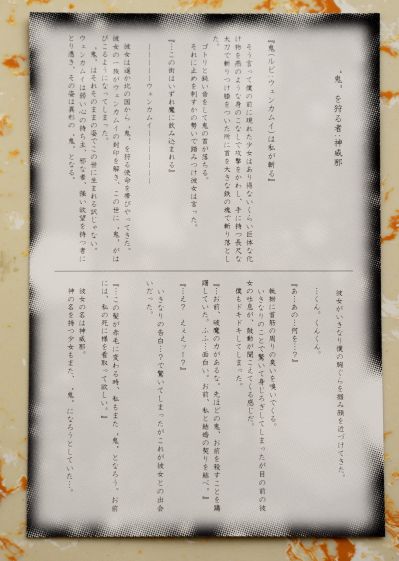 〝鬼〟を狩る者：神威那
『鬼(ルビ・ウェンカムイ)は私が斬る』
そう言って僕の前に現れた少女はあり得ないくらい巨体な化
け物を燕のような身のこなしで攻撃をかわし、手に持つ長尺な
太刀で斬りつけ膝をついた所に首を大きな鉄の塊で斬り落とし
た。
ゴトリと鈍い音をして鬼の首が落ちる。
それに止めを刺すかの勢いで踏みつけ彼女は言った。
『…この街はいずれ魔に飲み込まれる』
―――――ウェンカムイ―――――
彼女は遥か北の国から〝鬼〟を狩る使命を帯びやってきた。
彼女の一族がウェンカムイの封印を解き、この世に〝鬼〟がは
びこるようになってしまった。
〝鬼〟はそれそのままの姿でこの世に生まれる訳じゃない。
ウェンカムイは弱い心の持ち主、邪な者、強い欲望を持つ者に
とり憑き、その姿は異形の〝鬼〟となる。
彼女がいきなり僕の胸ぐらを掴み顔を近づけてきた。
…くん。くんくん。
『あ…あの…何を…？』
執拗に首筋の周りの臭いを嗅いでくる。
いきなりのことで驚いて身じろぎしてしまったが目の前の彼
女の吐息が、鼓動が聞こえてくる感じだ。
僕もドキドキしてしまった。
『…お前、破魔の力があるな。先ほどの鬼、お前を殺すことを躊
躇していた。ふふ…面白い。お前、私と結婚の契りを結べ。』
『…え？　ええェッー？』
いきなりの告白…？で驚いてしまったがこれが彼女との出会
いだった。
『…この髪が赤毛に変わる時、私もまた〝鬼〟となろう。お前
には、私の死に様を看取って欲しい。』
彼女の名は神威那。
神の名を持つ少女もまた、〝鬼〟になろうとしていた…。